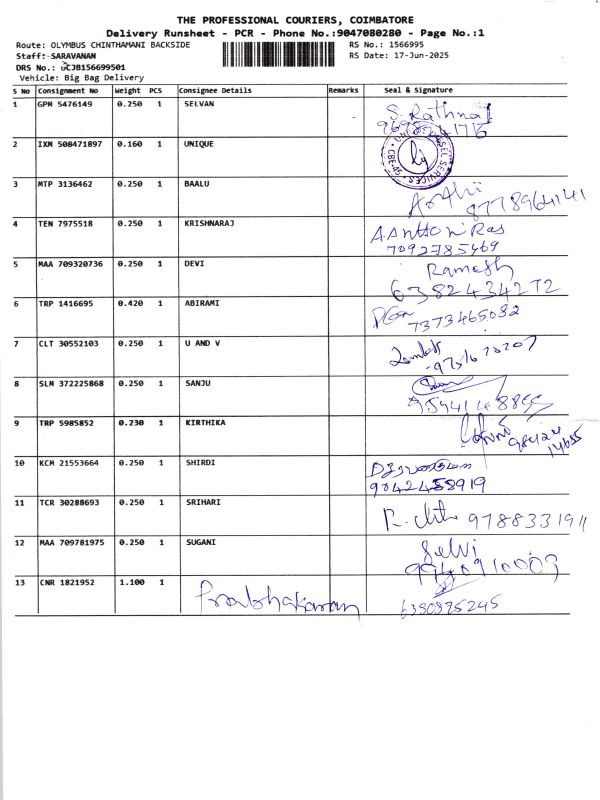 THE PROFESSIONAL COURIERS, COIMBATORE
Delivery Runsheet - PCR - Phone No.:9047080280 - Page No.:1
Route: OLYMBUS CHINTHAMANI BACKSIDE RS No.: 1566995
Staff: SARAVANAN RS Date: 17-Jun-2025
DRS No.: GCJB156699501
Vehicle: Big Bag Delivery
S No Consignment No Weight PCS Consignee Details Remarks Seal & Signature
1 GPM 5476149 0.250 1 SELVAN S. Rathna
2 IXM 508471897 0.160 1 UNIQUE
3 MTP 3136462 0.250 1 BAALU Arthi 8778964141
4 TEN 7975518 0.250 1 KRISHNARAJ
7092785469
5 MAA 709320736 0.250 1 DEVI Ramesh
6382434272
6 TRP 1416695 0.420 1 ABIRAMI
7373465032
7 CLT 30552103 0.250 1 U AND V
8 SLM 372225868 0.250 1 SANJU
9 TRP 5985852 0.230 1 KIRTHIKA
10 KCM 21553664 0.250 1 SHIRDI
9042458919
11 TCR 30288693 0.250 1 SRIHARI 9788331911
12 MAA 709781975 0.250 1 SUGANI Selvi
9940910003
13 CNR 1821952 1.100 1 Prabhakaran 6380985245